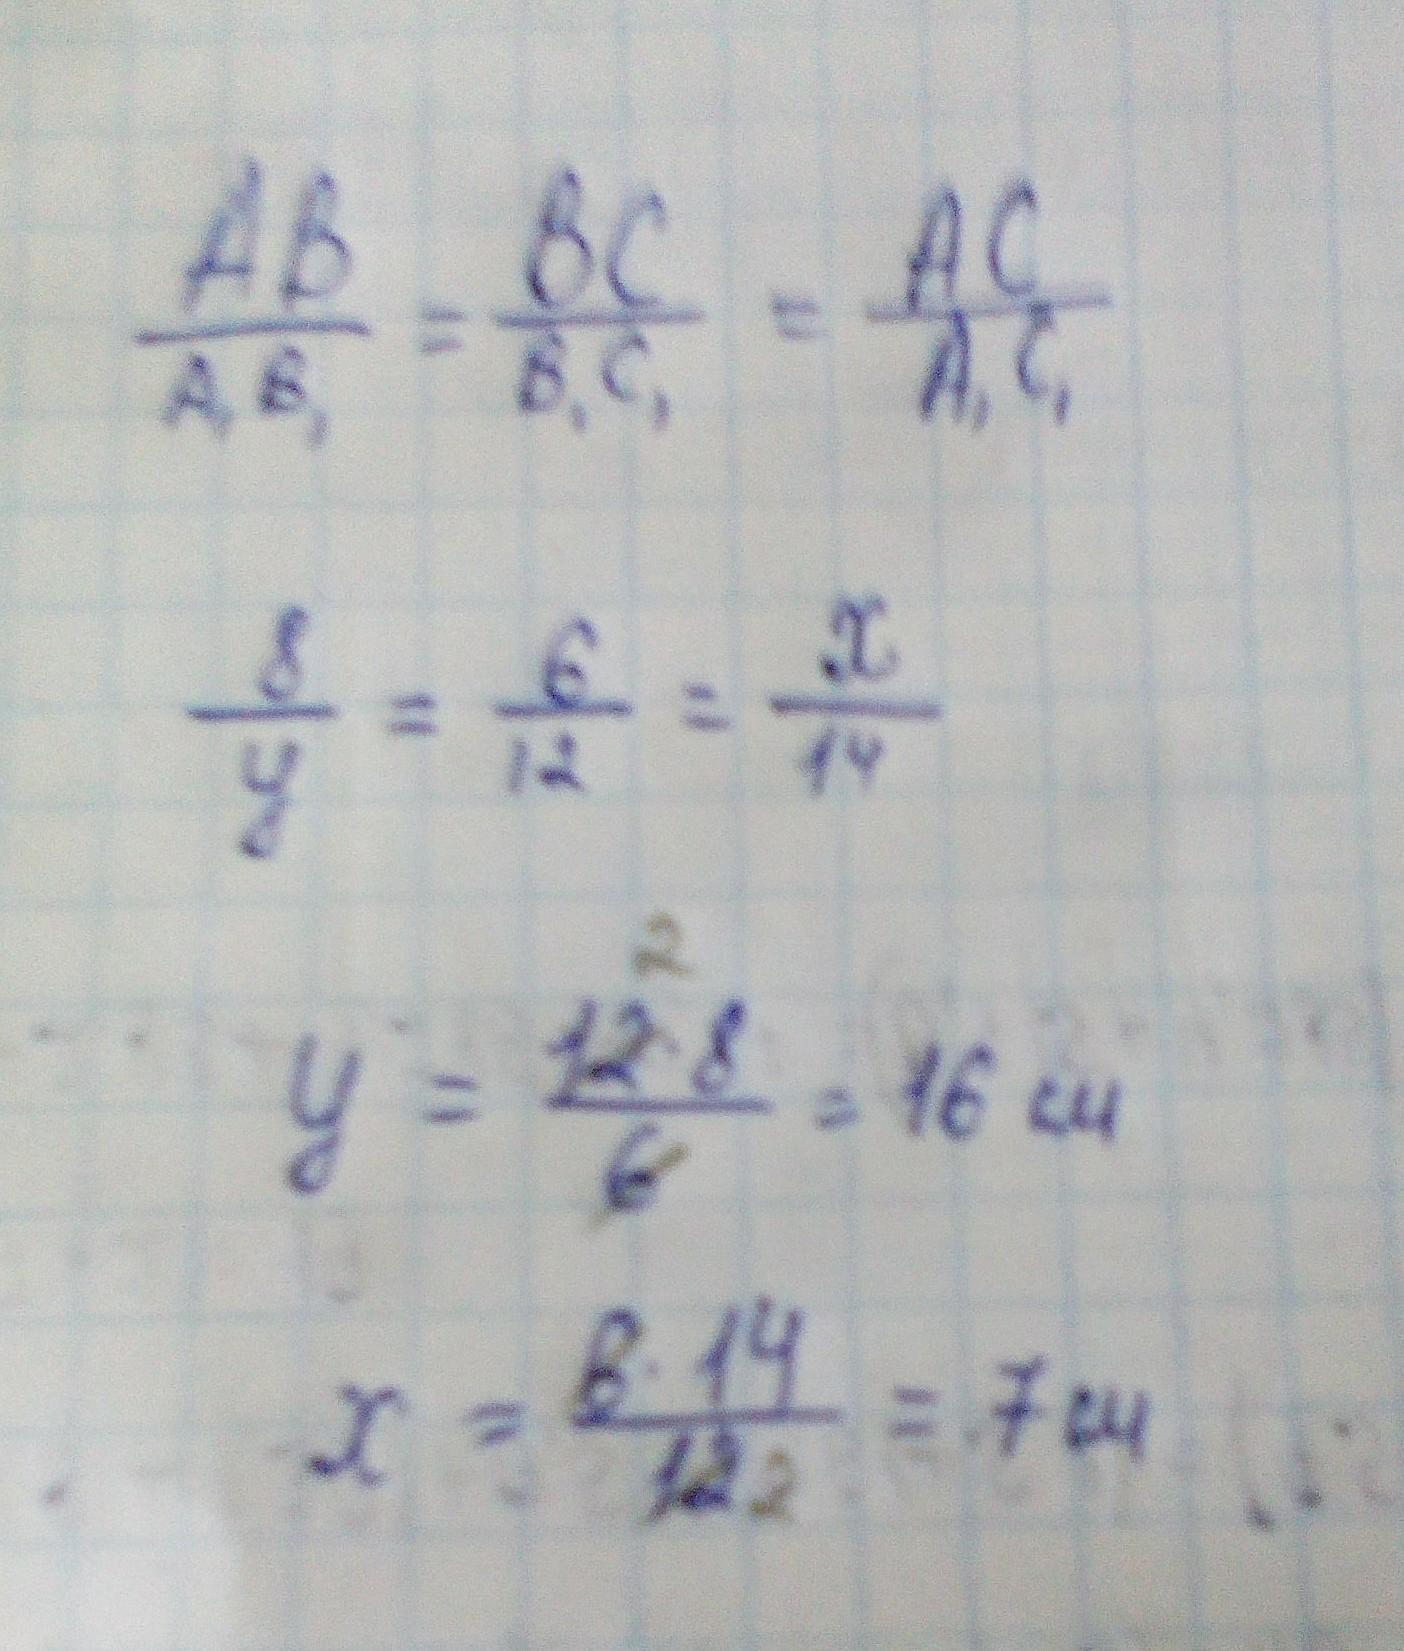 AB/A₁B₁ = BC/B₁C₁ = AC/A₁C₁
8/y = 6/12 = x/14
2
y = 12·8/6 = 16 см
x = 6·14/12 2 = 7 см